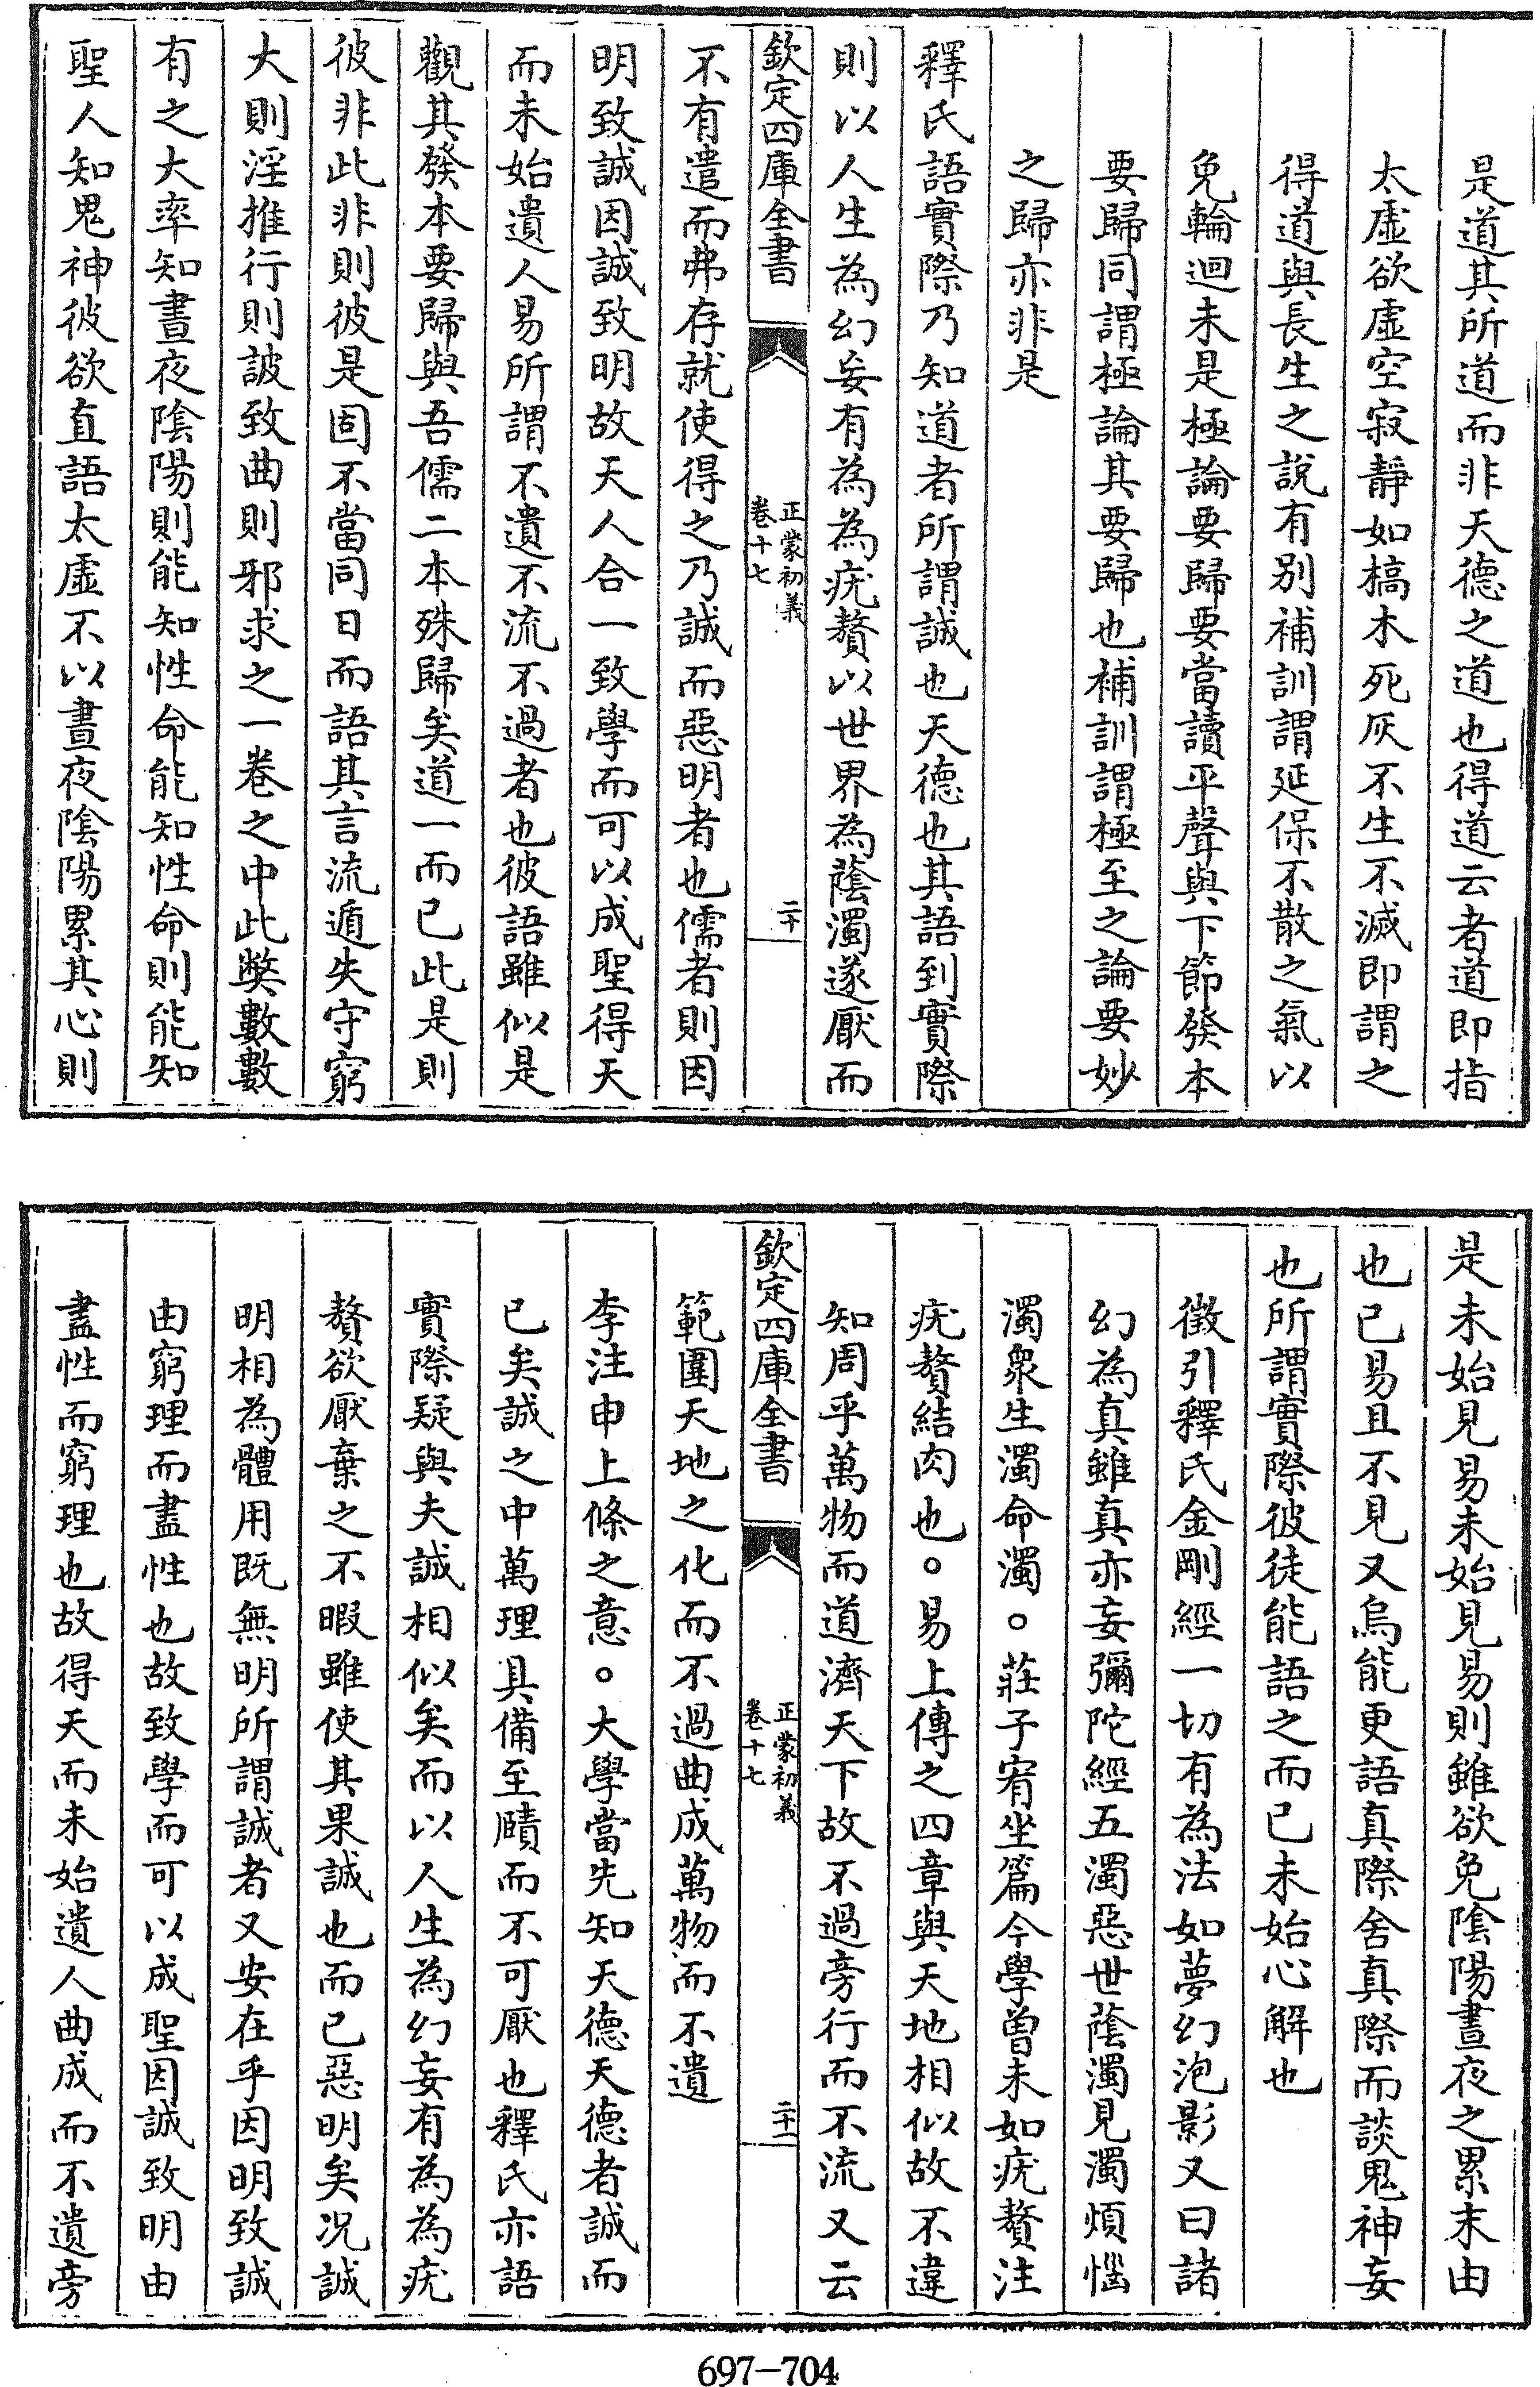 是道其所道而非天德之道也得道云者道即指
太虛欲虛空寂靜如槁木死灰不生不滅即謂之
得道與長生之說有別補訓謂延保不散之氣以
免輪迴未是極論要歸要當讀平聲與下節發本
要歸同謂極論其要歸也補訓謂極至之論要妙
之歸亦非是
釋氏語實際乃知道者所謂誠也天德也其語到實際
則以人生為幻妄有為為疣贅以世界為蔭濁遂厭而
欽定四庫全書
正蒙初義
卷十七
二十
不有遣而弗存就使得之乃誠而惡明者也儒者則因
明致誠因誠致明故天人合一致學而可以成聖得天
而未始遺人易所謂不遺不流不過者也彼語雖似是
觀其發本要歸與吾儒二本殊歸矣道一而已此是則
彼非此非則彼是固不當同日而語其言流遁失守窮
大則淫推行則詖致曲則邪求之一卷之中此弊數數
有之大率知晝夜陰陽則能知性命能知性命則能知
聖人知鬼神彼欲直語太虛不以晝夜陰陽累其心則
是未始見易未始見易則雖欲免陰陽晝夜之累末由
也已易且不見又烏能更語真際舍真際而談鬼神妄
也所謂實際彼徒能語之而已未始心解也
徵引釋氏金剛經一切有為法如夢幻泡影又曰諸
幻為真雖真亦妄彌陀經五濁惡世蔭濁見濁煩惱
濁衆生濁命濁。莊子宥坐篇今學曾未如疣贅注
疣贅結肉也。易上傳之四章與天地相似故不違
知周乎萬物而道濟天下故不過旁行而不流又云
欽定四庫全書
正蒙初義
卷十七
二十一
範圍天地之化而不過曲成萬物而不遺
李注申上條之意。大學當先知天德天德者誠而
已矣誠之中萬理具備至賾而不可厭也釋氏亦語
實際疑與夫誠相似矣而以人生為幻妄有為為疣
贅欲厭棄之不暇雖使其果誠也而已惡明矣况誠
明相為體用既無明所謂誠者又安在乎因明致誠
由窮理而盡性也故致學而可以成聖因誠致明由
盡性而窮理也故得天而未始遺人曲成而不遺旁
697-704